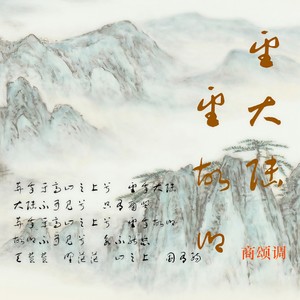 望大陆
望故乡
葬我于高山之上兮 望我大陆
大陆不可见兮 只有痛哭
葬我于高山之上兮 望我故乡
故乡不可见兮 永不能忘
天苍苍 野茫茫 山之上 国有殇
商颂调